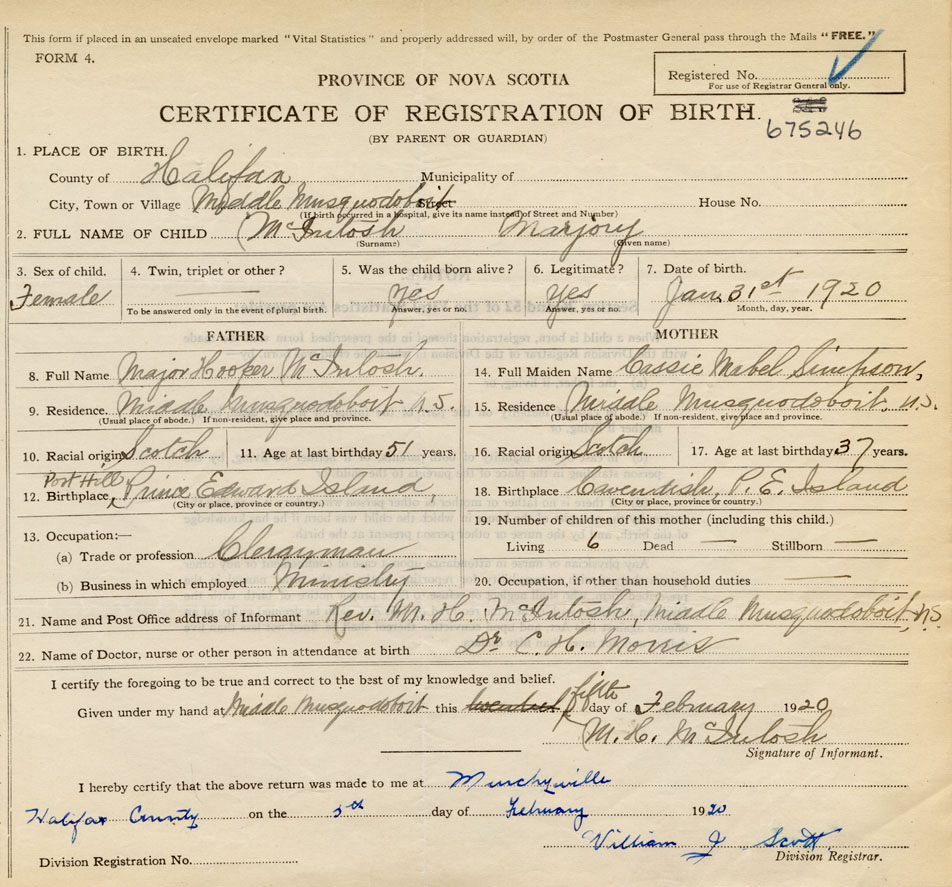 This form if placed in an unsealed envelope marked "Vital Statistics" and properly addressed will, by order of the Postmaster General pass through the Mails "FREE."
FORM 4.
PROVINCE OF NOVA SCOTIA
Registered No.
For use of Registrar General only.
CERTIFICATE OF REGISTRATION OF BIRTH.
675246
(BY PARENT OR GUARDIAN)
1. PLACE OF BIRTH.
County of Halifax Municipality of
City, Town or Village Middle Musquodoboit Street House No.
(If birth occurred in a hospital, give its name instead of Street and Number)
2. FULL NAME OF CHILD McIntosh Marjory
(Surname) (Given name)
3. Sex of child. 4. Twin, triplet or other? 5. Was the child born alive? 6. Legitimate? 7. Date of birth.
Female — Yes Yes Jan. 31st 1920
To be answered only in the event of plural birth. Answer, yes or no. Answer, yes or no. Month, day, year.
FATHER MOTHER
8. Full Name Major Hooper McIntosh. 14. Full Maiden Name Cassie Mabel Simpson,
9. Residence. Middle Musquodoboit N.S. 15. Residence Middle Musquodoboit, N.S.
(Usual place of abode.) If non-resident, give place and province. (Usual place of abode.) If non-resident, give place and province.
10. Racial origin Scotch 11. Age at last birthday 51 years. 16. Racial origin Scotch 17. Age at last birthday 37 years.
Port Hill
12. Birthplace, Prince Edward Island, 18. Birthplace Cavendish, P.E. Island
(City or place, province or country.) (City or place, province or country.)
13. Occupation:— 19. Number of children of this mother (including this child.)
(a) Trade or profession Clergyman Living 6 Dead — Stillborn —
(b) Business in which employed Ministry 20. Occupation, if other than household duties —
21. Name and Post Office address of Informant Rev. M. H. McIntosh, Middle Musquodoboit, N.S.
22. Name of Doctor, nurse or other person in attendance at birth Dr C. H. Morris
I certify the foregoing to be true and correct to the best of my knowledge and belief.
Given under my hand at Middle Musquodoboit this fifth day of February 1920
M. H. McIntosh
Signature of Informant.
I hereby certify that the above return was made to me at
Halifax County on the 5th day of February 1920
William J Scott
Division Registrar.
Division Registration No.